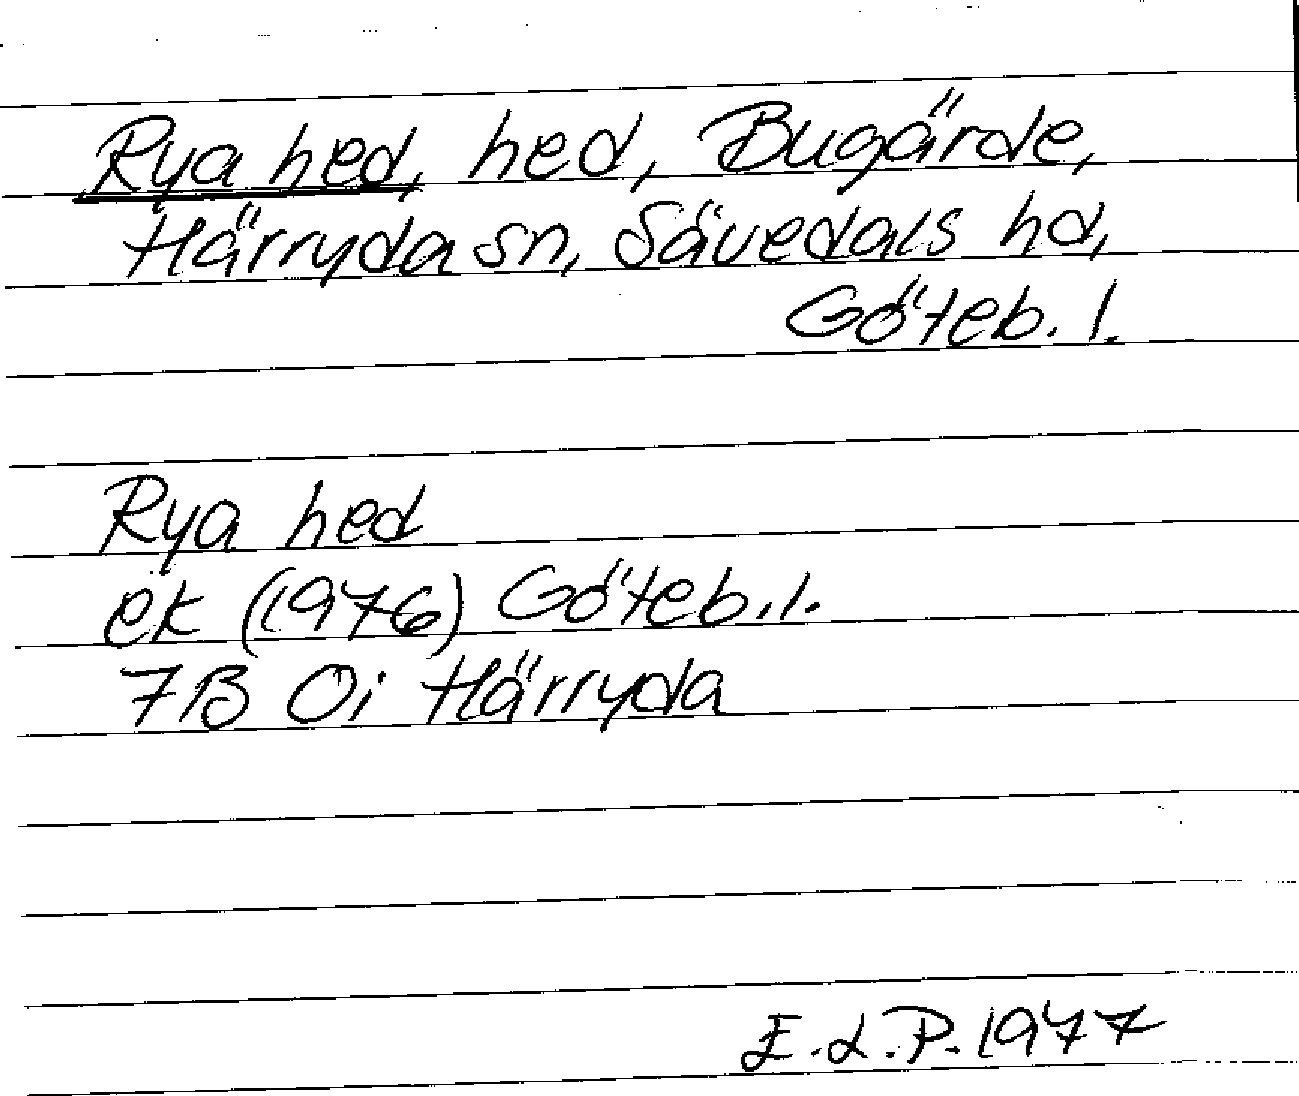 Rya hed, hed, Bugärde,
Härryda sn, Sävedals hd,
Göteb. l.
Rya hed
ek (1976) Göteb. l.
7B 0i Härryda
E.L.P. 1977